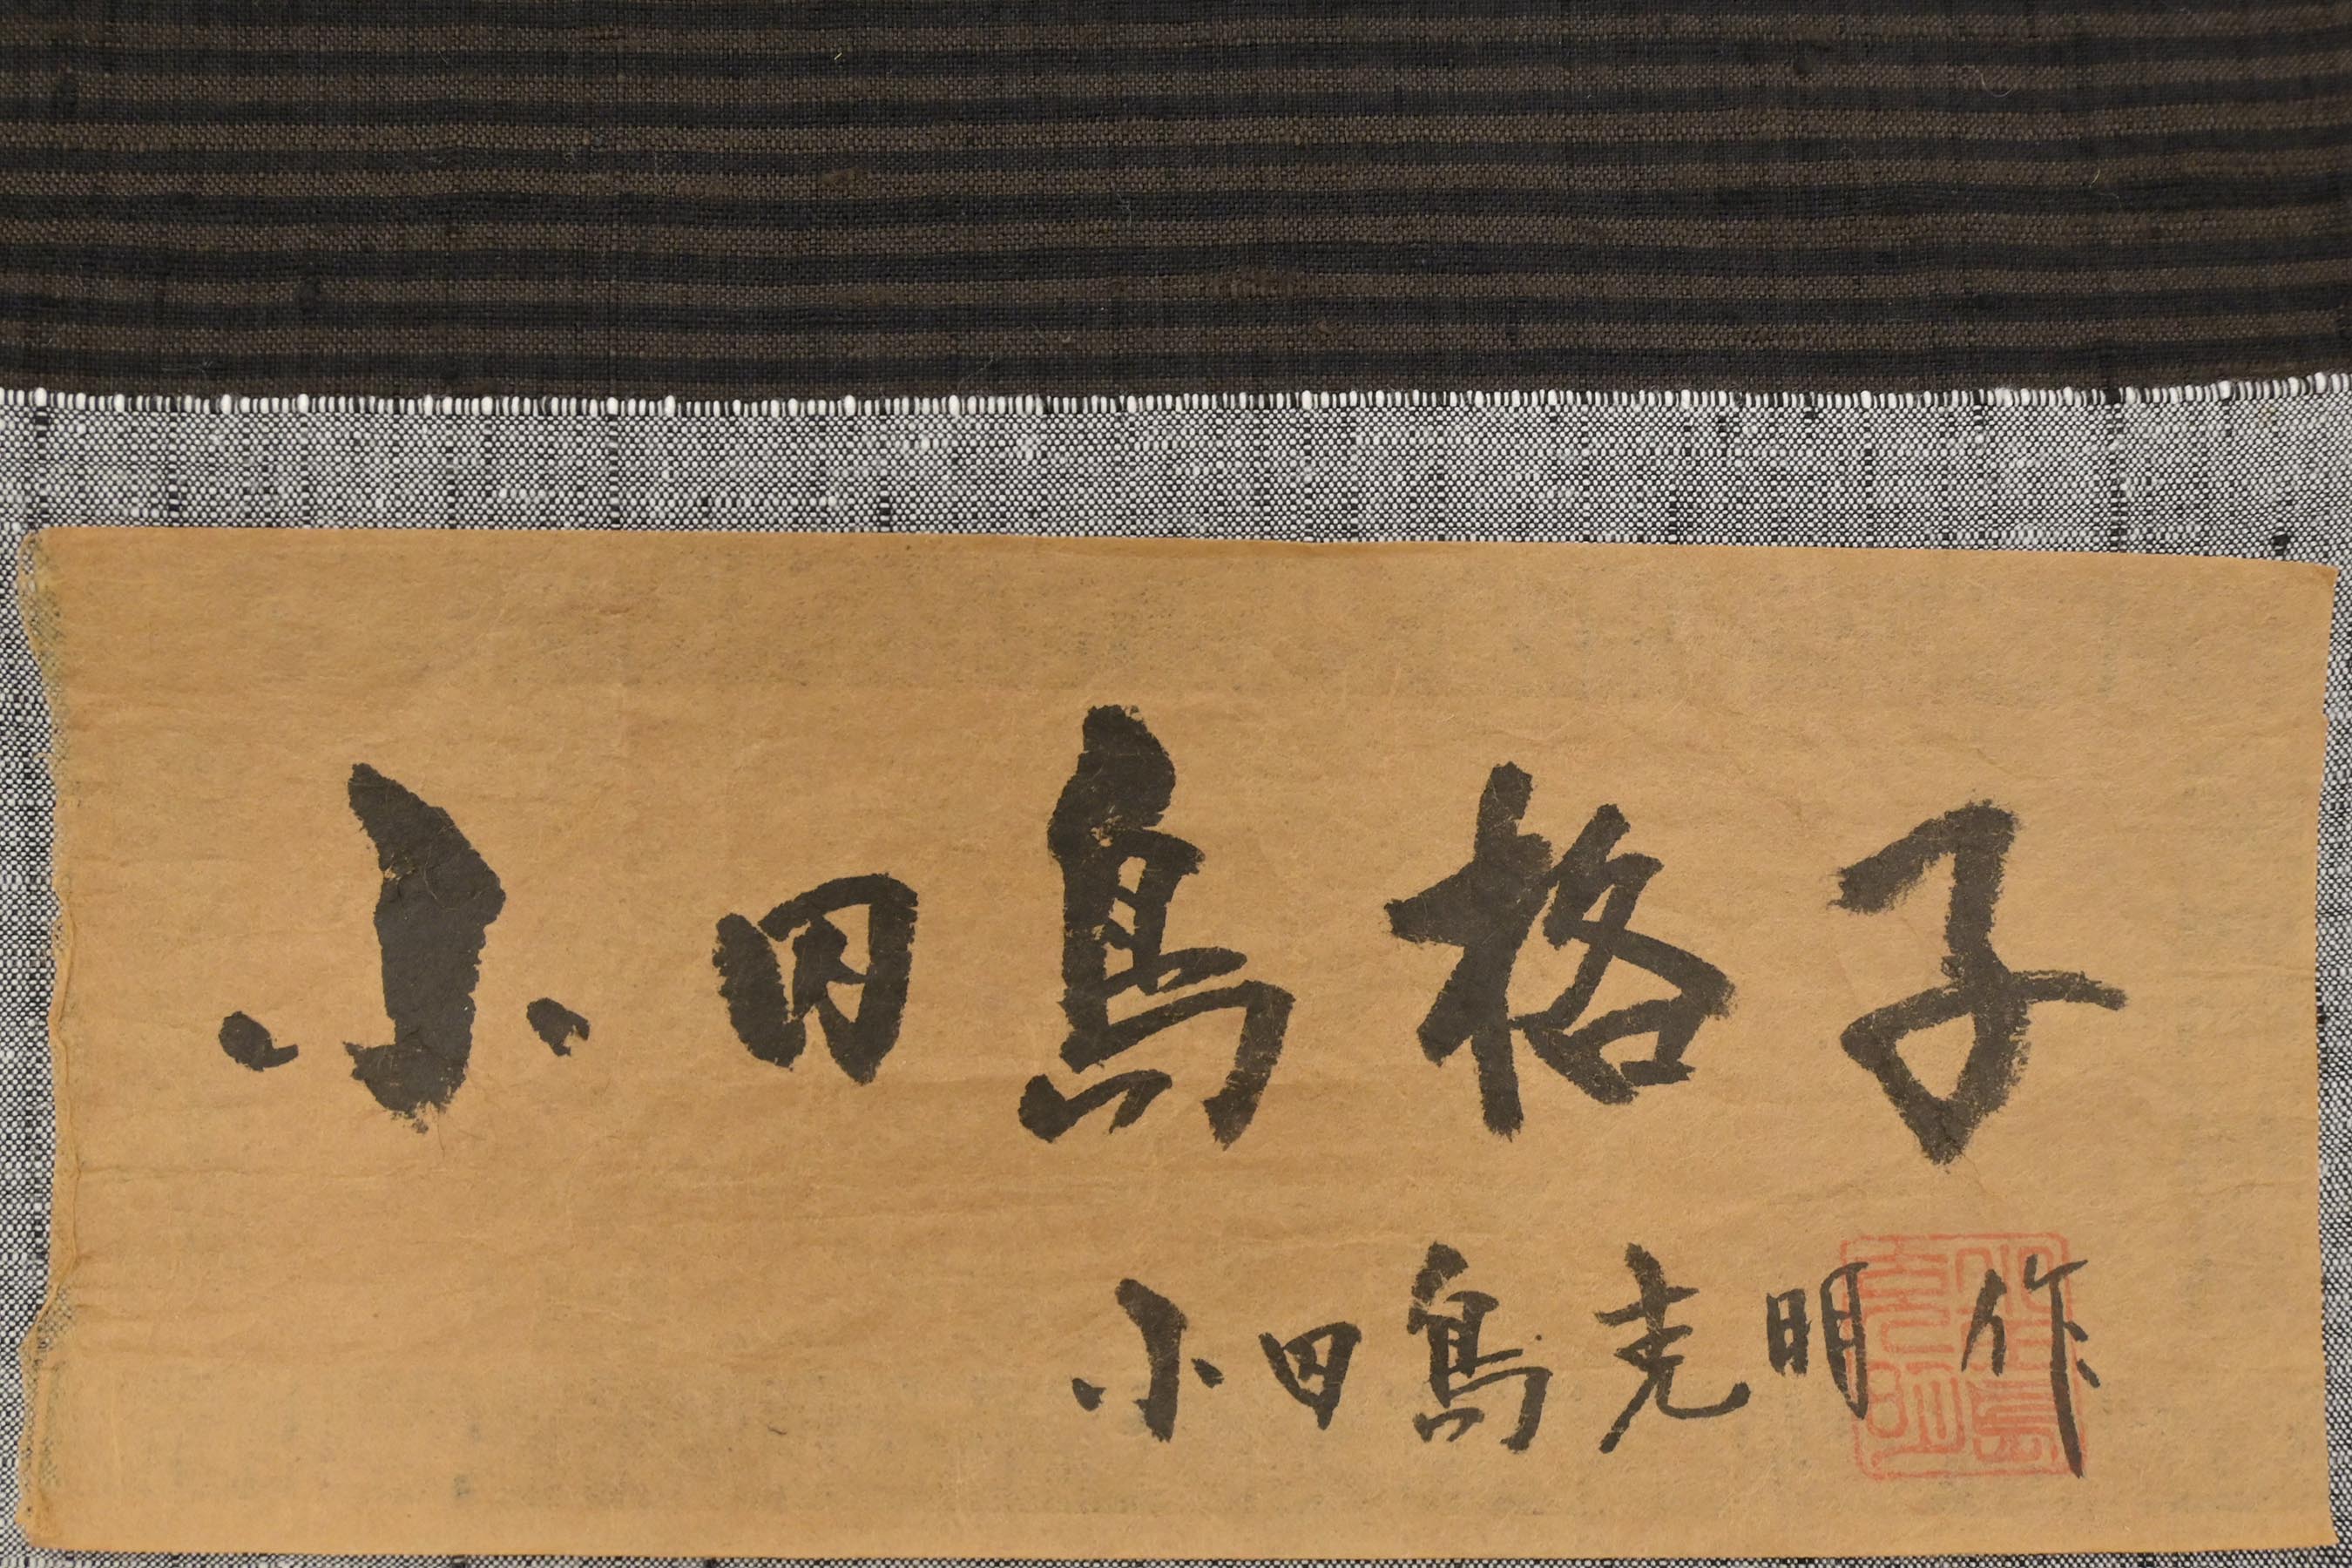 小田島格子
小田島克明作